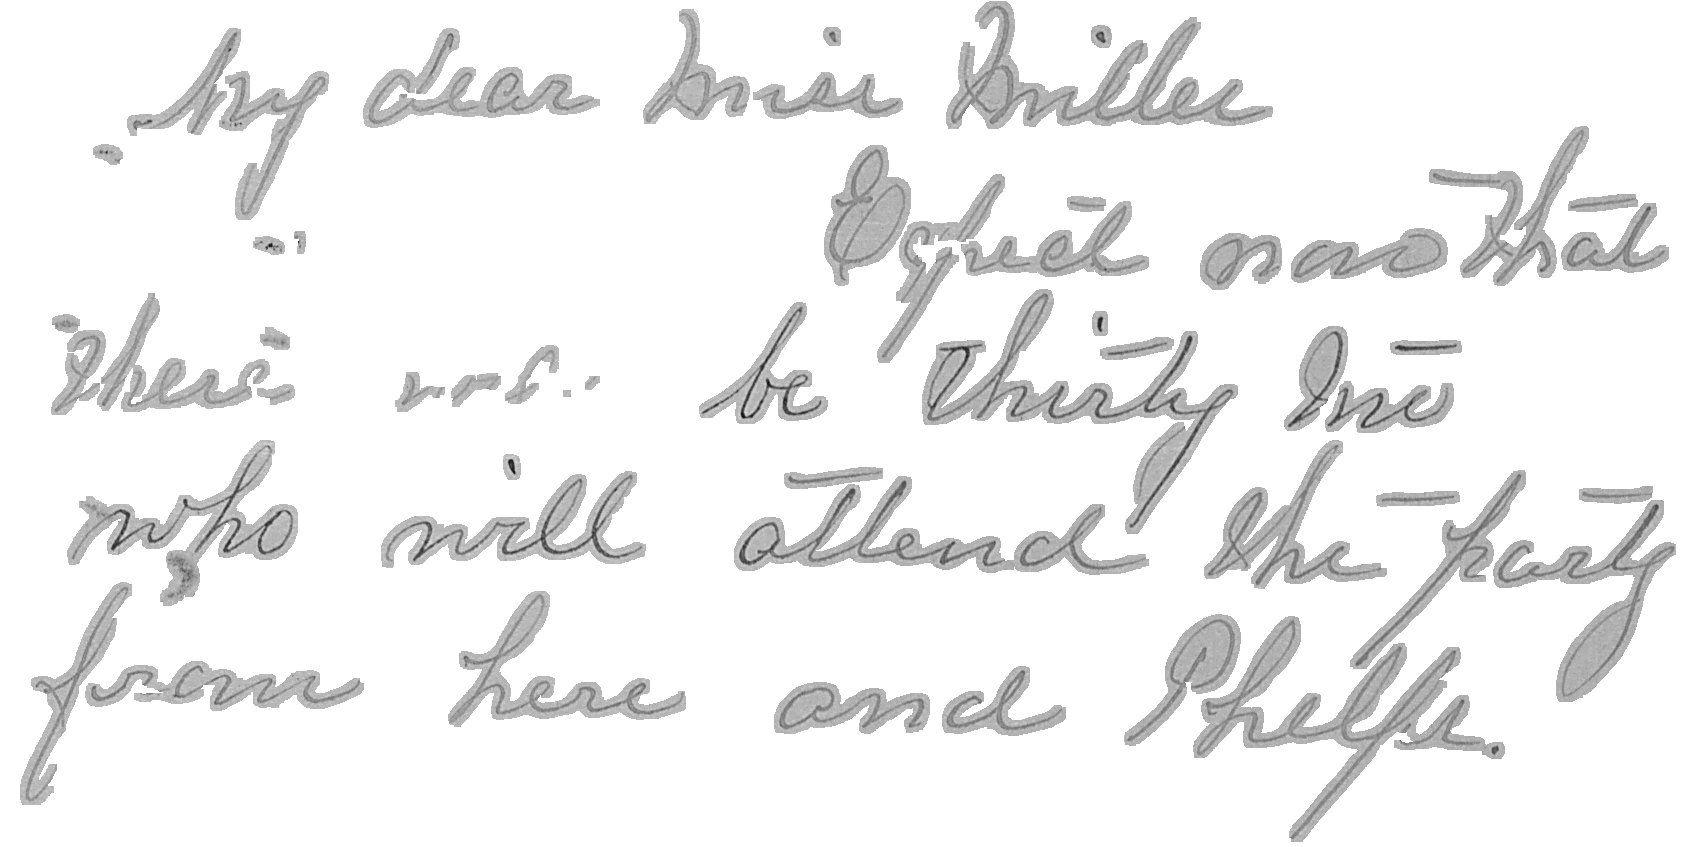 My dear Miss Miller
Expect now that
there be thirty two
who will attend the party
from here and Phelps.